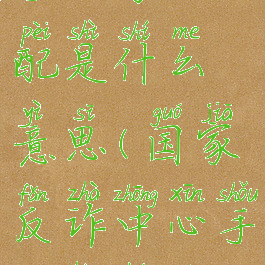 pèi shì shí me
配是什么
yì si guó jiā
意思(国家
fǎn zhà zhōng xīn shǒu
反诈中心手